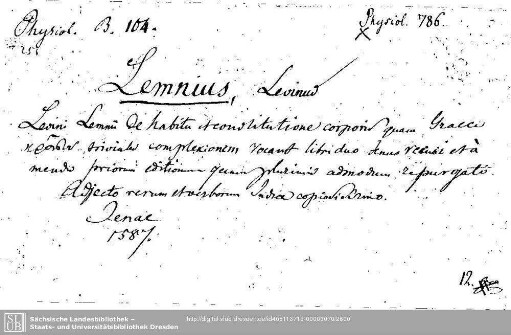 Physiol. B. 104.
Physiol. 786.
Lemnius, Levinus
Levini Lemnii De habitu et constitutione corporis quam Graeci
triviales complexionem vocant libri duo denuo recusi et à
mendis priorum editionum quam plurimis admodum repurgati.
Adjecto rerum et verborum Indice copiosissimo.
Jenae
1587.
12.
Sächsische Landesbibliothek –
Staats- und Universitätsbibliothek Dresden